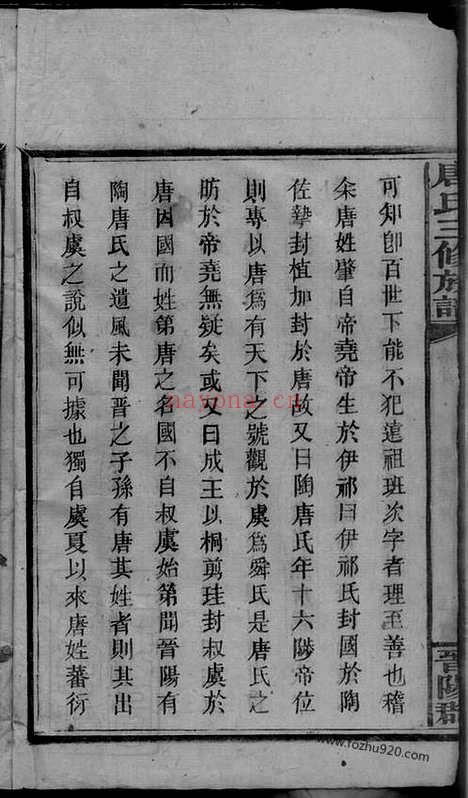 唐氏三修族譜
晉陽郡
可知卽百世下能不犯遠祖班次字者理至善也稽
余唐姓肇自帝堯帝生於伊祁曰伊祁氏封國於陶
佐摯封植加封於唐故又曰陶唐氏年十六陟帝位
則專以唐爲有天下之號觀於虞爲舜氏是唐氏之
昉於帝堯無疑矣或又曰成王以桐剪珪封叔虞於
唐因國而姓第唐之名國不自叔虞始第聞晉陽有
陶唐氏之遺風未聞晉之子孫有唐其姓者則其出
自叔虞之說似無可據也獨自虞夏以來唐姓蕃衍
nayona.cn
www.fozhu920.com